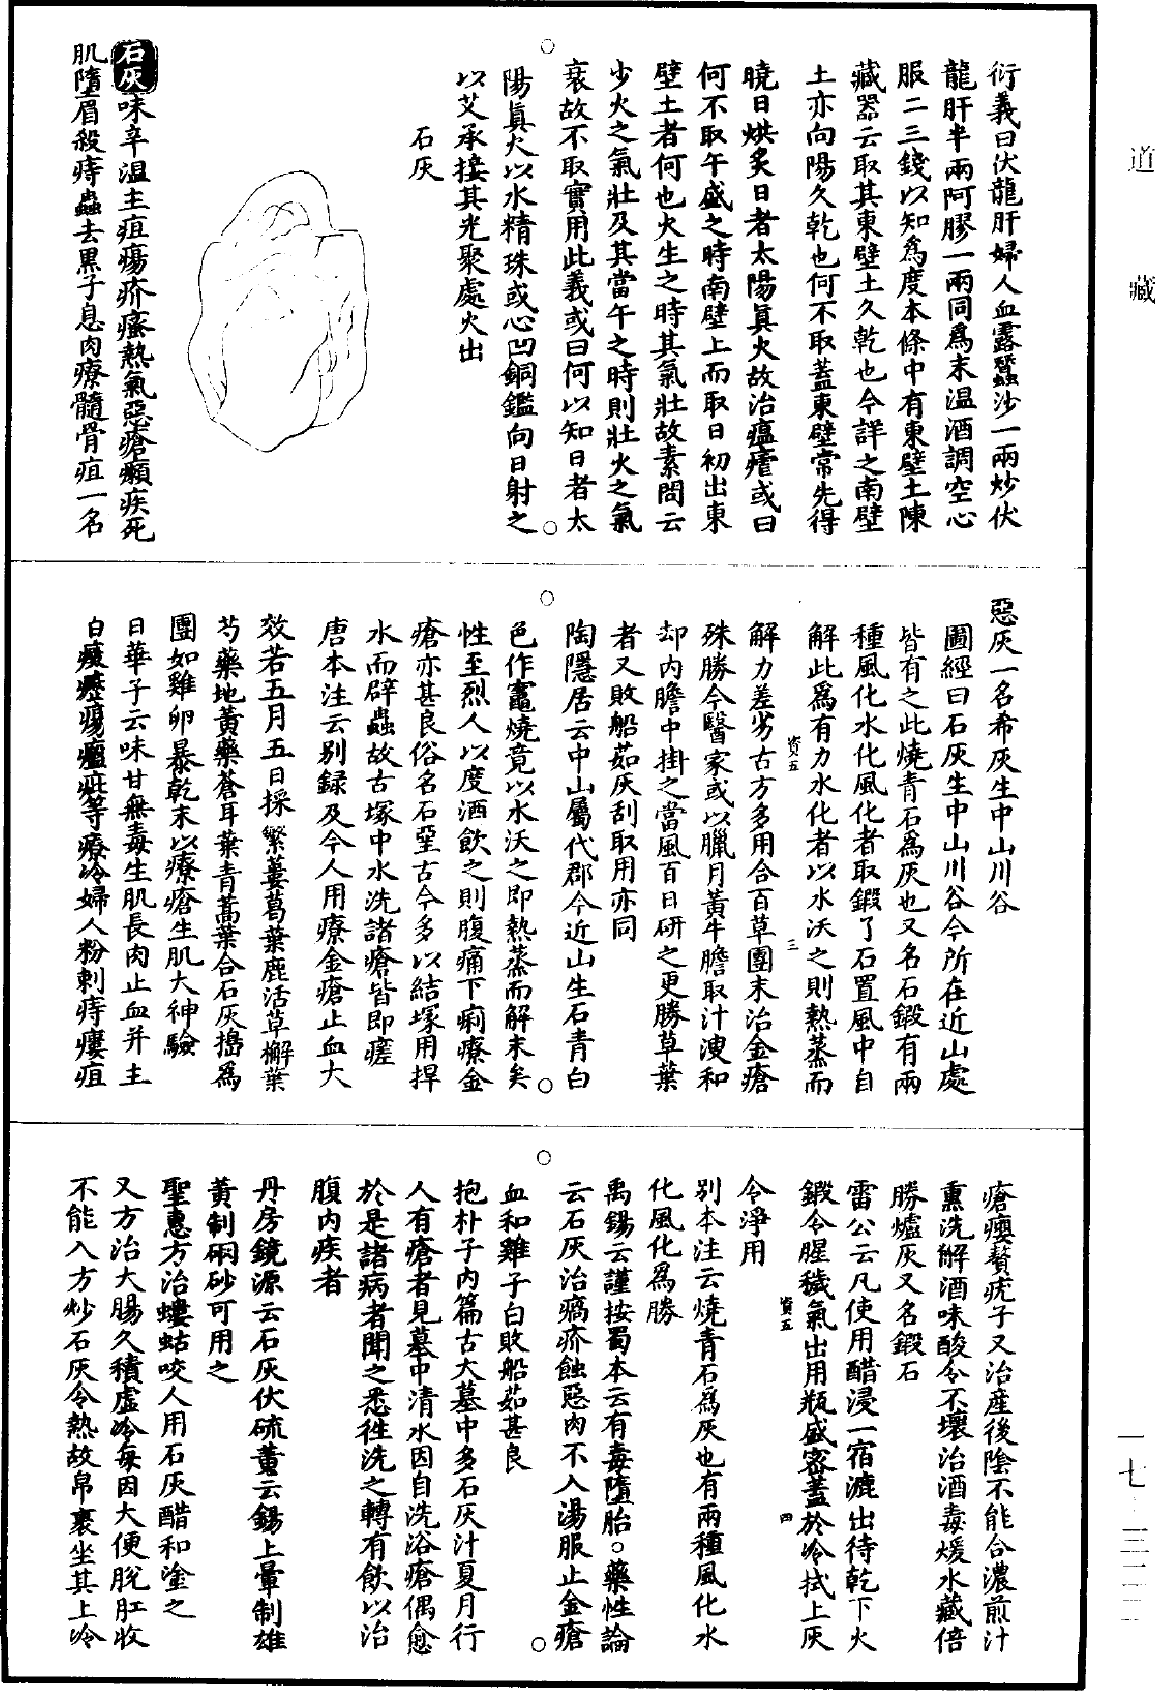 道藏
衍義曰伏龍肝婦人血露蠶沙一兩炒伏
龍肝半兩阿膠一兩同爲末温酒調空心
服二三錢以知爲度本條中有東壁土陳
藏器云取其東壁土久乾也今詳之南壁
土亦向陽久乾也何不取蓋東壁常先得
曉日烘炙日者太陽真火故治瘟瘧或曰
何不取午盛之時南壁上而取日初出東
壁土者何也火生之時其氣壯故素問云
少火之氣壯及其當午之時則壯火之氣
衰故不取實用此義或曰何以知日者太
陽真火以水精珠或心凹銅鑑向日射之
以艾承接其光聚處火出
石灰
石灰味辛温主疽瘍疥瘙熱氣惡瘡癩疾死
肌墮眉殺痔蟲去黑子息肉療髓骨疽一名
惡灰一名希灰生中山川谷
圖經曰石灰生中山川谷今所在近山處
皆有之此燒青石爲灰也又名石鍛有兩
種風化水化風化者取鍛了石置風中自
解此爲有力水化者以水沃之則熱蒸而
資五
三
解力差劣古方多用合百草團末治金瘡
殊勝今醫家或以臘月黃牛膽取汁溲和
却内膽中掛之當風百日研之更勝草葉
者又敗船茹灰刮取用亦同
陶隱居云中山屬代郡今近山生石青白
色作竈燒竟以水沃之即熱蒸而解末矣
性至烈人以度酒飲之則腹痛下痢療金
瘡亦甚良俗名石堊古今多以結塚用捍
水而辟蟲故古塚中水洗諸瘡皆即瘥
唐本注云別録及今人用療金瘡止血大
效若五月五日採繁蔞葛葉鹿活草檞葉
芍藥地黃葉蒼耳葉青蒿葉合石灰擣爲
團如雞卵暴乾末以療瘡生肌大神驗
日華子云味甘無毒生肌長肉止血并主
白癜癧瘍瘢疵等療冷婦人粉刺痔瘻疽
瘡癭贅疣子又治産後陰不能合濃煎汁
熏洗解酒味酸令不壞治酒毒煖水藏倍
勝爐灰又名鍛石
雷公云凡使用醋浸一宿漉出待乾下火
鍛令腥穢氣出用瓶盛密蓋於冷拭上灰
資五
四
令淨用
別本注云燒青石爲灰也有兩種風化水
化風化爲勝
禹錫云謹按蜀本云有毒墮胎○藥性論
云石灰治瘑疥蝕惡肉不入湯服止金瘡
血和雞子白敗船茹甚良
抱朴子内篇古大墓中多石灰汁夏月行
人有瘡者見墓中清水因自洗浴瘡偶愈
於是諸病者聞之悉徃洗之轉有飲以治
腹内疾者
丹房鏡源云石灰伏硫黃云錫上暈制雄
黃制硇砂可用之
聖惠方治螻蛄咬人用石灰醋和塗之
又方治大腸久積虛冷每因大便脫肛收
不能入方炒石灰令熱故帛裹坐其上冷